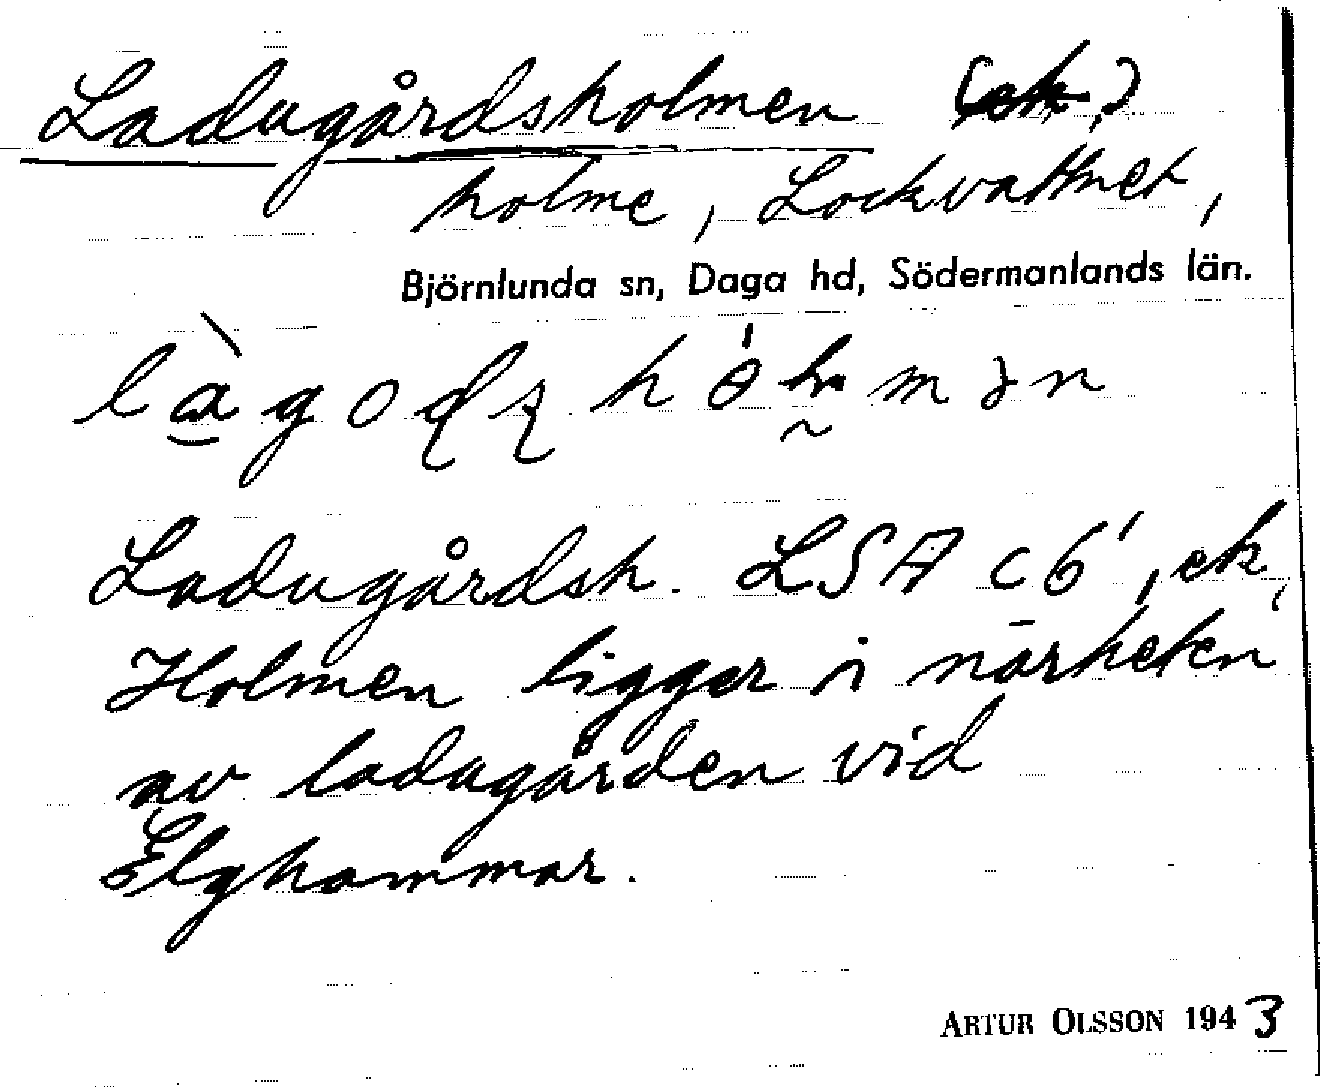 Ladugårdsholmen (ek)
holme, Lockvattnet,
Björnlunda sn, Daga hd, Södermanlands län.
Ladugårdsh. LSA c6', ek,
Holmen ligger i närheten
av ladugården vid
Elghammar.
ARTUR OLSSON 1943